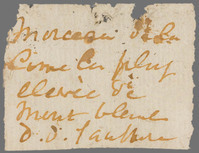 Morceau de la
Cime la plus
elevée du
Mont blanc
D. D. Saussure